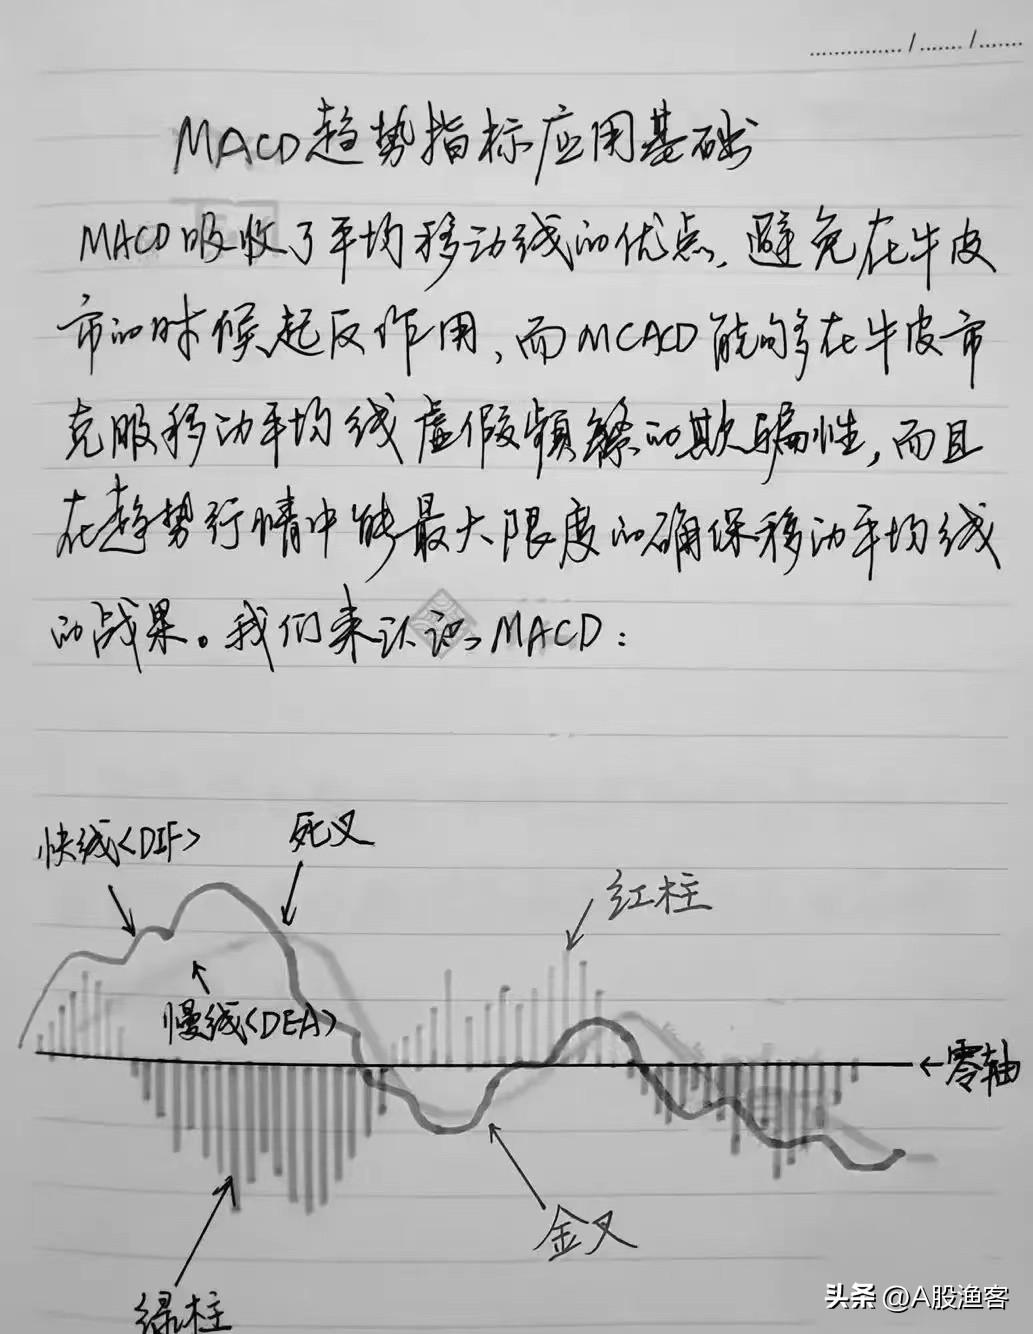 MACD趋势指标应用基础
MACD吸收了平均移动线的优点,避免在牛皮
市的时候起反作用,而MCACD能够在牛皮市
克服移动平均线虚假频繁的欺骗性,而且
在趋势行情中能最大限度的确保移动平均线
的战果。我们来认识MACD:
快线<DIF>
死叉
红柱
慢线<DEA>
←零轴
金叉
绿柱
头条 @A股渔客